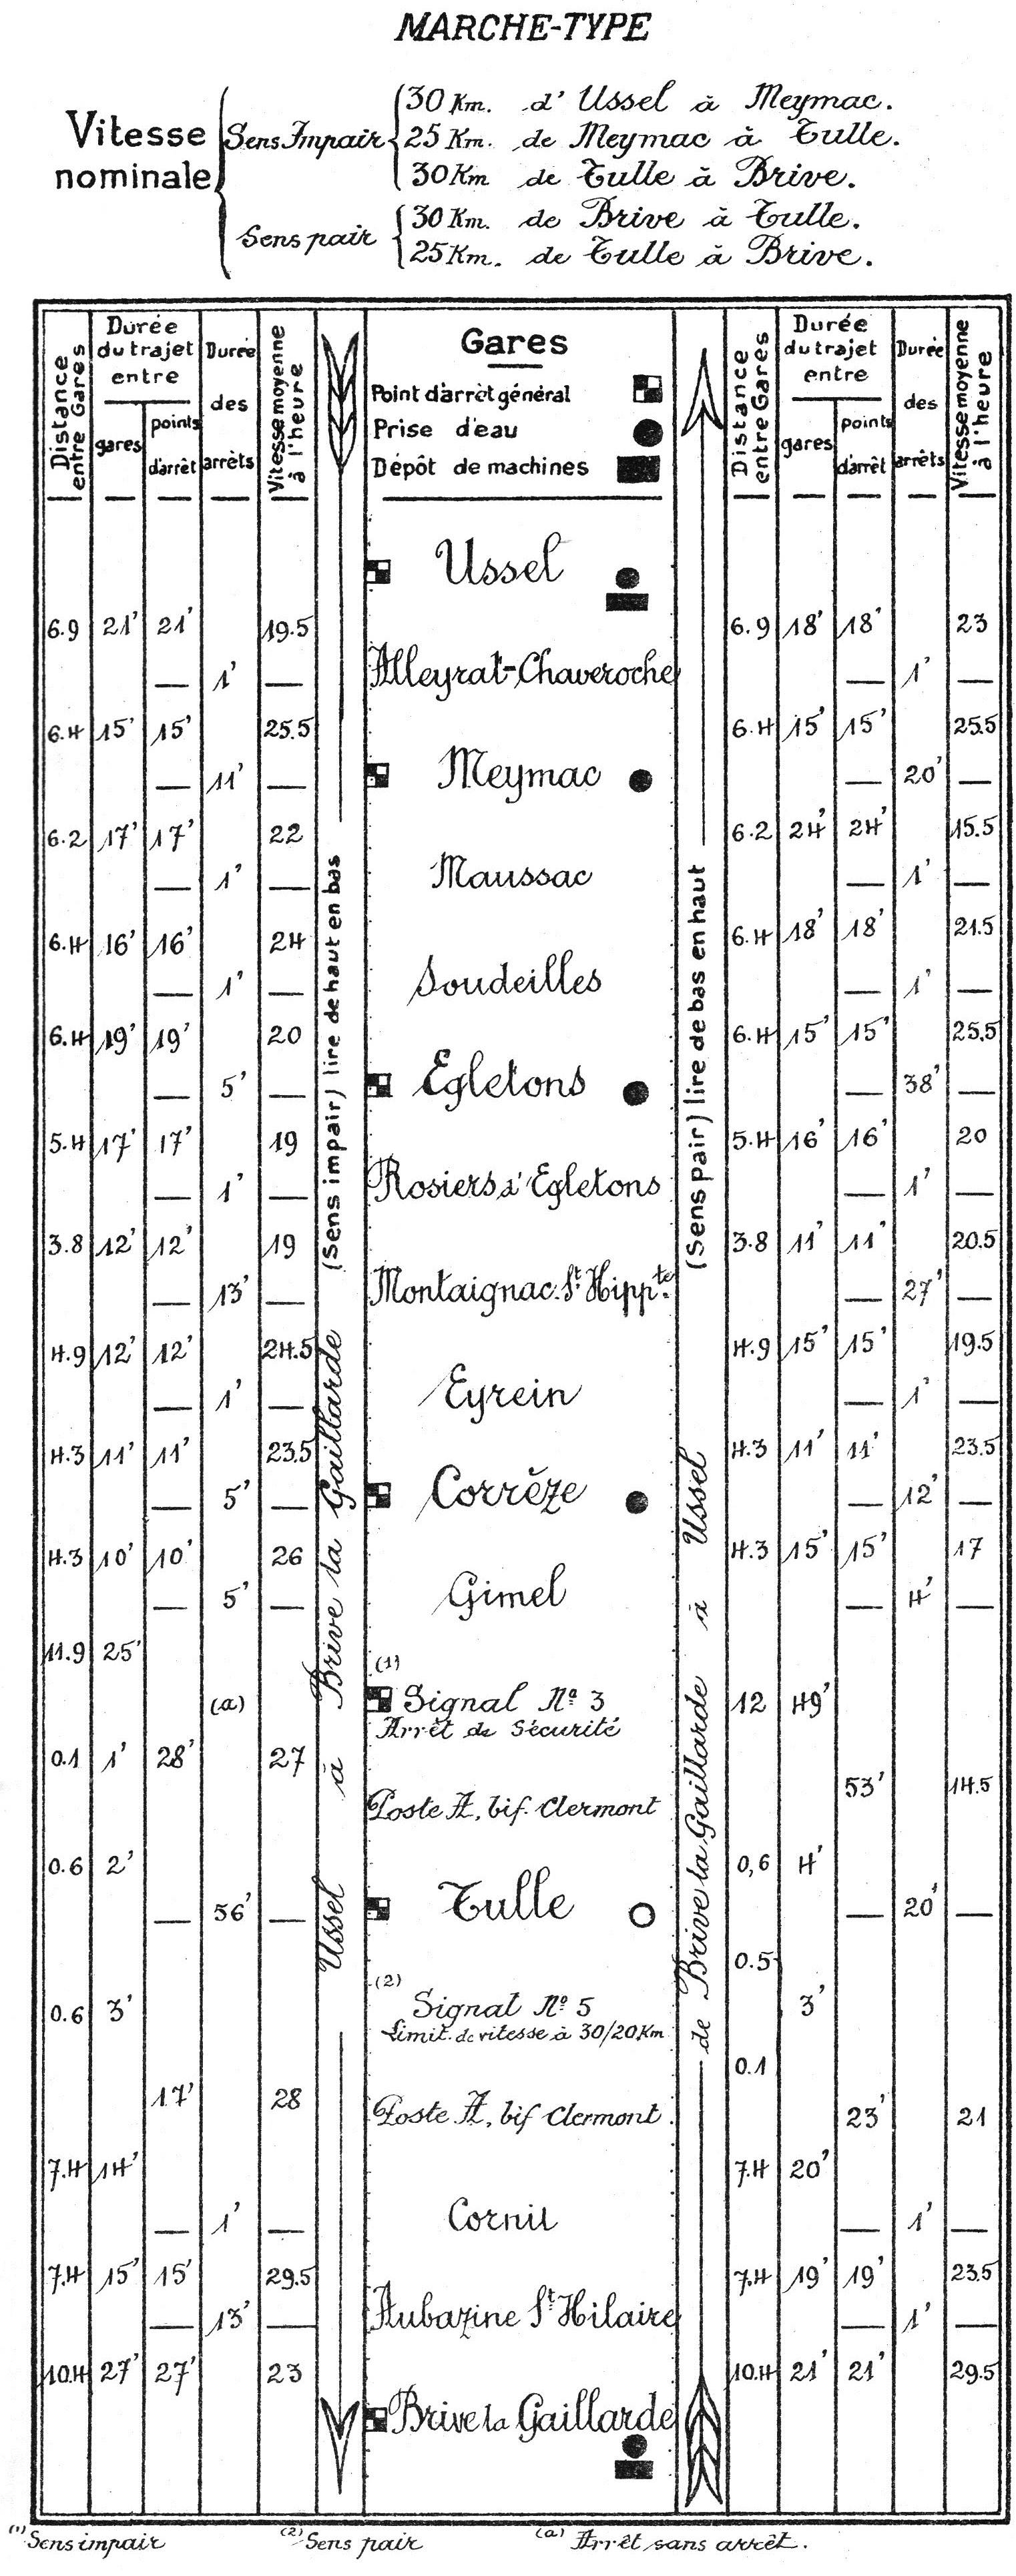 MARCHE-TYPE
Vitesse nominale
Sens Impair
30 Km. d' Ussel à Meymac.
25 Km. de Meymac à Tulle.
30 Km de Tulle à Brive.
Sens pair
30 Km. de Brive à Tulle.
25 Km. de Tulle à Brive.
Distance entre Gares
Durée du trajet entre
gares
points d'arrêt
Durée des arrêts
Vitesse moyenne à l'heure
Gares
Point d'arrêt général
Prise d'eau
Dépôt de machines
Distance entre Gares
Durée du trajet entre
gares
points d'arrêt
Durée des arrêts
Vitesse moyenne à l'heure
(Sens impair) lire de haut en bas
Ussel à Brive la Gaillarde
(Sens pair) lire de bas en haut
de Brive la Gaillarde à Ussel
Ussel
6.9 21' 21' 19.5 6.9 18' 18' 23
Alleyrat-Chaveroche
— 1' — — 1' —
6.4 15' 15' 25.5 6.4 15' 15' 25.5
Meymac
— 11' — — 20' —
6.2 17' 17' 22 6.2 24' 24' 15.5
Maussac
— 1' — — 1' —
6.4 16' 16' 24 6.4 18' 18' 21.5
Soudeilles
— 1' — — 1' —
6.4 19' 19' 20 6.4 15' 15' 25.5
Egletons
— 5' — — 38' —
5.4 17' 17' 19 5.4 16' 16' 20
Rosiers d'Egletons
— 1' — — 1' —
3.8 12' 12' 19 3.8 11' 11' 20.5
Montaignac. St Hippte.
— 13' — — 27' —
4.9 12' 12' 24.5 4.9 15' 15' 19.5
Eyrein
— 1' — — 1' —
4.3 11' 11' 23.5 4.3 11' 11' 23.5
Corrèze
— 5' — — 12' —
4.3 10' 10' 26 4.3 15' 15' 17
Gimel
— 5' — — 4' —
11.9 25'
(1)
Signal No 3
Arrêt de Sécurité
(a) 12 49'
0.1 1' 28' 27 53' 14.5
Poste A, bif. Clermont
0.6 2' 0,6 4'
Tulle
— 56' — — 20' —
0.5
(2)
Signal No 5
Limit. de vitesse à 30/20 Km
0.6 3' 3'
0.1
17' 28
Poste A, bif Clermont.
23' 21
7.4 14' 7.4 20'
Cornil
— 1' — — 1' —
7.4 15' 15' 29.5 7.4 19' 19' 23.5
Aubazine St Hilaire
— 13' — — 1' —
10.4 27' 27' 23 10.4 21' 21' 29.5
Brive la Gaillarde
(1) Sens impair (2) Sens pair (a) Arrêt sans arrêt.